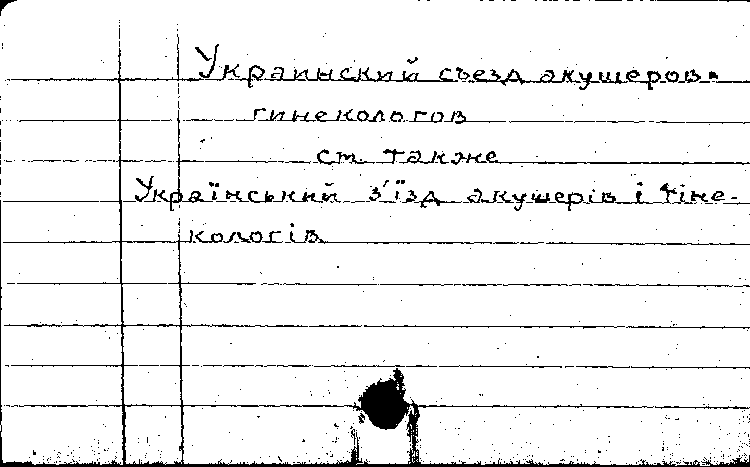 Украинский съезд акушеров-
гинекологов
см. также
Український з'їзд акушерів і гіне-
кологів